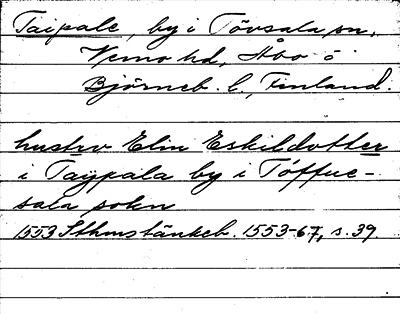 Taipale, by i Tövsala sn,
Vemo hd, Åbo o
Björneb. l., Finland.
hustrv Elin Eskildotter
i Taÿpala by i Töffue-
sala sokn
1553 Sthmstänkeb. 1553-67, s. 39